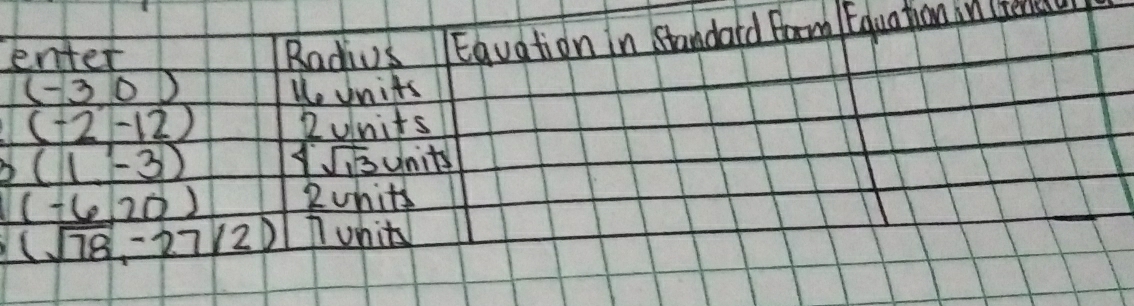 enter Radius Equation in Standard Form Equation in General
(-3 0) 16 units
(-2 -12) 2 units
3 (1 -3) 4√13 units
(-6, 20) 2 units
(√78, -27/2) 7 units